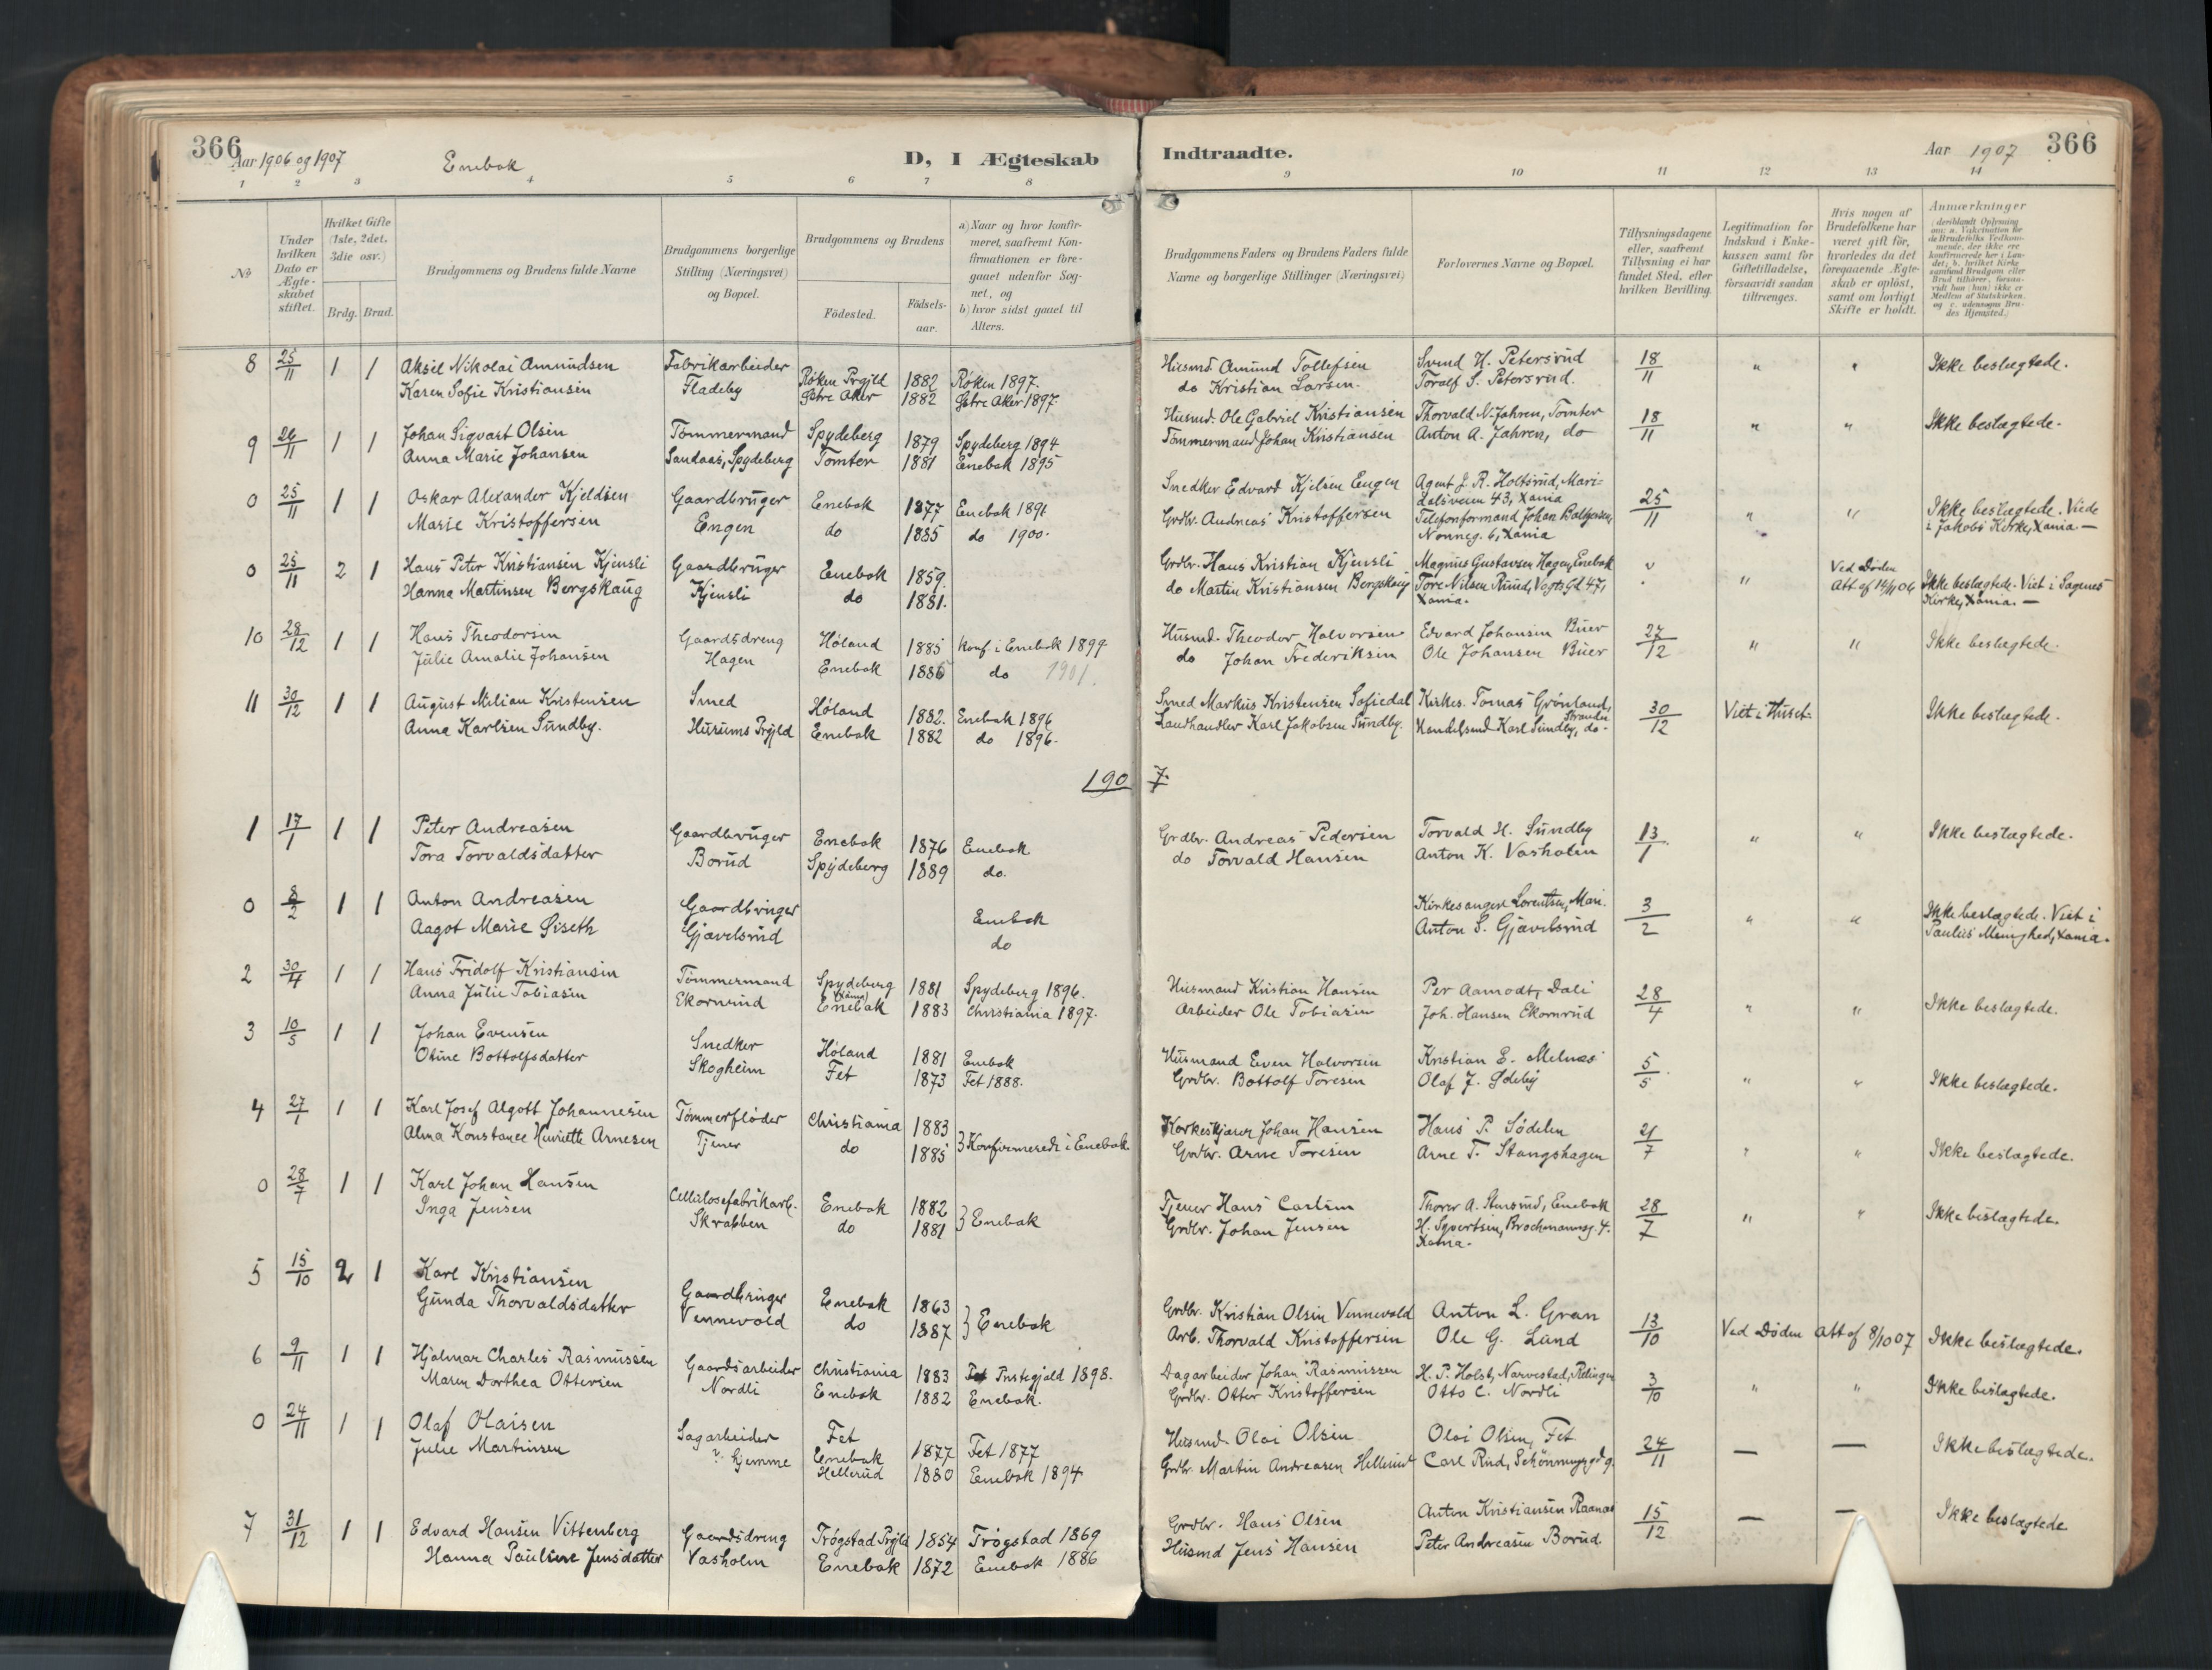 366
Aar 1906 og 1907
Enebak
D, I Ægteskab
Indtraadte.
Aar 1907
366
1 2 3 4 5 6 7 8 9 10 11 12 13 14
No
Under hvilken Dato er Ægteskabet stiftet.
Hvilket Gifte (1ste, 2det, 3die osv.)
Brdg. Brud.
Brudgommens og Brudens fulde Navne
Brudgommens borgerlige Stilling (Næringsvei) og Bopæl.
Brudgommens og Brudens
Födested.
Födsels-aar.
a) Naar og hvor konfirmeret, saafremt Konfirmationen er foregaaet udenfor Sognet, og
b) hvor sidst gaaet til Alters.
Brudgommens Faders og Brudens Faders fulde Navne og borgerlige Stillinger (Næringsvei)
Forlovernes Navne og Bopæl.
Tillysningsdagene eller, saafremt Tillysning ei har fundet Sted, efter hvilken Bevilling.
Legitimation for Indskud i Enkekassen samt for Giftetilladelse, forsaavidt saadan tiltrænges.
Hvis nogen af Brudefolkene har været gift för, hvorledes da det foregaaende Ægteskab er oplöst, samt om lovligt Skifte er holdt.
Anmærkninger
(deriblandt Oplysning om: a. Vakcination for de Brudefolks Vedkommende, der ikke ere konfirmerede her i Landet; b. hvilket Kirkesamfund Brudgom eller Brud tilhörer, forsaavidt han (hun) ikke er Medlem af Statskirken, og c. udensogns Brudes Hjemsted.)
8 25/11 1 1 Aksel Nikolai Amundsen Fabrikarbeider Røken Prgjld 1882 Røken 1897. Husmd. Amund Tollefsen Svend H. Petersrud 18/11 " " Ikke beslægtede.
Karen Sofie Kristiansen Fladeby Østre Aker 1882 Østre Aker 1897 do Kristian Larsen. Toralf S. Petersrud.
9 26/11 1 1 Johan Sigvart Olsen Tømmermand Spydeberg 1879 Spydeberg 1894 Husmd. Ole Gabriel Kristiansen Thorvald N. Jahren, Tomter 18/11 " " Ikke beslægtede.
Anna Marie Johansen Sandaas, Spydeberg Tomter 1881 Enebak 1895 Tømmermand Johan Kristiansen Anton A. Jahren, do
0 25/11 1 1 Oskar Alexander Kjeldsen Gaardbruger Enebak 1877 Enebak 1891 Snedker Edvard Kjelsen Engen Agent J. R. Holtsrud, Mari-
dalsveien 43, Xania 25/11 " " Ikke beslægtede. Viede
Marie Kristoffersen Engen do 1885 do 1900. Grdbr. Andreas Kristoffersen Telefonformand Johan i Jakobs Kirke, Xania —
Nonneg. 6, Xania
0 25/11 2 1 Hans Peter Kristiansen Kjensli Gaardbruger Enebak 1859. Grdbr. Hans Kristian Kjensli Magnus Gustavsen Hagen, Enebak " Ved Døden
Hanna Martinsen Bergskaug Kjensli do 1881. do Martin Kristiansen Bergskaug Tore Nilsen Ruud, Vogts Gd 47, Att. af 14/11 06 Ikke beslægtede. Viet i Sagenes
Xania. Kirke, Xania. —
10 28/12 1 1 Hans Theodorsen Gaardsdreng Høland 1885 Konf. i Enebak 1899 Husmd. Theodor Halvorsen Edvard Johansen Buer 27/12 " " Ikke beslægtede.
Julie Amalie Johansen Hagen Enebak 1886 do 1901. do Johan Frederiksen Ole Johansen Buer
11 30/12 1 1 August Milian Kristensen Smed Høland 1882. Enebak 1896 Smed Markus Kristensen Sofiedal Kirkes. Tomas Grønland, Strander 30/12 Viet i Huset. Ikke beslægtede.
Anna Karlsen Sundby. Hurums Prgjld Enebak 1882 do 1896. Landhandler Karl Jakobsen Sundby. Handelsmd Karl Sundby, do.
1907.
1 17/1 1 1 Peter Andreasen Gaardbruger Enebak 1876 Enebak Grdbr. Andreas Pedersen Torvald H. Sundby 13/1 " " Ikke beslægtede.
Tora Torvaldsdatter Borud Spydeberg 1889 do. do Torvald Hansen Anton K. Vasholm
0 8/2 1 1 Anton Andreasen Gaardbruger Enebak Kirkesanger Lorentsen, Mari. 3/2 " " Ikke beslægtede. Viet i
Aagot Marie Giseth Gjævelsrud do Anton S. Gjævelsrud Paulus Menighed, Xania.
2 30/4 1 1 Hans Fridolf Kristiansen Tømmermand Spydeberg 1881 Spydeberg 1896. Husmand Kristian Hansen Per Aamodt, Dali 28/4 " " Ikke beslægtede.
Anna Julie Tobiasen Ekornrud (Xania) Enebak 1883 Christiania 1897. Arbeider Ole Tobiasen Joh. Hansen Ekornrud
3 10/5 1 1 Johan Evensen Snedker Høland 1881 Enebak Husmand Even Halvorsen Kristian E. Melnes 5/5 " " Ikke beslægtede.
Otine Bottolfsdatter Skogheim Fet 1873 Fet 1888. Grdbr. Bottolf Toresen Olaf J. Ødeby
4 27/7 1 1 Karl Josef Algott Johannesen Tømmerfløder Christiania 1883 } Konfirmerede i Enebak Korkeskjærer Johan Hansen Hans P. Sødelen 21/7 " " Ikke beslægtede.
Alma Konstance Henriette Arnesen Tjener do 1885 Grdbr. Arne Toresen Arne T. Stangshagen
0 28/7 1 1 Karl Johan Hansen Cellulosefabrikarb. Enebak 1882 } Enebak Tjener Hans Carlsen Thorer A. Enebak 28/7 " " Ikke beslægtede.
Inga Jensen Skrabben do 1881 Grdbr. Johan Jensen H. Syvertsen, Brochmannsg. 4.
Xania.
5 15/10 2 1 Karl Kristiansen Gaardbruger Enebak 1863 } Enebak Grdbr. Kristian Olsen Vennevold Anton L. Gran 13/10 Ved Døden Att af 8/10 07 Ikke beslægtede.
Gunda Thorvaldsdatter Vennevold do 1887 Arb. Thorvald Kristoffersen Ole G. Lund
6 9/11 1 1 Hjalmar Charles Rasmussen Gaardsarbeider Christiania 1883 Fet Prstegjæld 1898. Dagarbeider Johan Rasmussen H. P. Holst, Narvestad, 3/10 " " Ikke beslægtede.
Maren Dorthea Ottersen Nordli Enebak 1882 Enebak. Grdbr. Otter Kristoffersen Otto C. Nordli
0 24/11 1 1 Olaf Olaisen Sagarbeider Fet 1877 Fet 1877 Husmd. Olai Olsen Olai Olsen, Fet 24/11 — — Ikke beslægtede.
Julie Martinsen Hjemme Enebak Hellerud 1880 Enebak 1894 Grdbr. Martin Andreasen Hellerud Carl Rud, Schönningsgd 9.
7 31/12 1 1 Edvard Hansen Vittenberg Gaardsdreng Trøgstad Prgjld 1854 Trøgstad 1869 Grdbr. Hans Olsen Anton Kristiansen Raanaas 15/12 — — Ikke beslægtede
Hanna Pauline Jensdatter Vasholm Enebak 1872 Enebak 1886 Husmd Jens Hansen Peter Andreasen Borud.